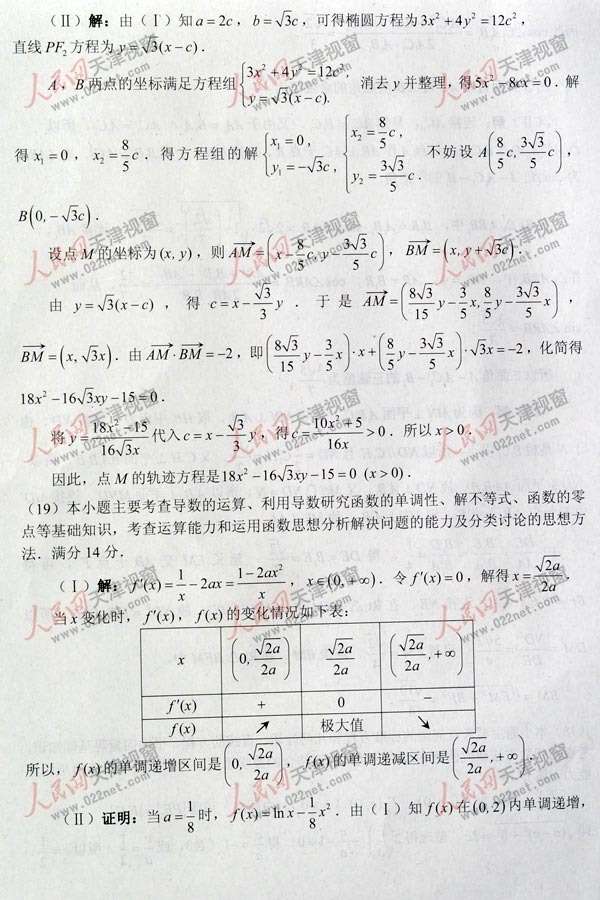 (Ⅱ)解：由(Ⅰ)知 a=2c，b=√3c，可得椭圆方程为3x²+4y²=12c²，
直线PF₂方程为 y=√3(x−c)．
A，B两点的坐标满足方程组{3x²+4y²=12c², y=√3(x−c). 消去 y 并整理，得5x²−8cx=0．解
得 x₁=0，x₂=8/5c．得方程组的解{x₁=0, y₁=−√3c, {x₂=8/5c, y₂=3√3/5c. 不妨设 A(8/5c, 3√3/5c)，
B(0,−√3c)．
设点 M 的坐标为(x, y)，则AM=(x−8/5c, y−3√3/5c)，BM=(x, y+√3c)．
由 y=√3(x−c)，得 c=x−√3/3y．于是 AM=(8√3/15y−3/5x, 8/5y−3√3/5x)，
BM=(x, √3x)．由AM·BM=−2，即(8√3/15y−3/5x)·x+(8/5y−3√3/5x)·√3x=−2，化简得
18x²−16√3xy−15=0．
将 y=(18x²−15)/(16√3x)代入 c=x−√3/3y，得 c=(10x²+5)/(16x)>0．所以 x>0．
因此，点 M 的轨迹方程是18x²−16√3xy−15=0 (x>0)．
(19)本小题主要考查导数的运算、利用导数研究函数的单调性、解不等式、函数的零
点等基础知识，考查运算能力和运用函数思想分析解决问题的能力及分类讨论的思想方
法．满分14分．
(Ⅰ)解：f′(x)=1/x−2ax=(1−2ax²)/x，x∈(0,+∞)．令 f′(x)=0，解得 x=√2a/2a．
当 x 变化时，f′(x)，f(x)的变化情况如下表：
x (0, √2a/2a) √2a/2a (√2a/2a, +∞)
f′(x) + 0 −
f(x) ↗ 极大值 ↘
所以，f(x)的单调递增区间是(0, √2a/2a)，f(x)的单调递减区间是(√2a/2a, +∞)．
(Ⅱ)证明：当 a=1/8 时，f(x)=ln x−1/8x²．由(Ⅰ)知 f(x)在(0,2)内单调递增，
人民网 天津视窗
www.022net.com